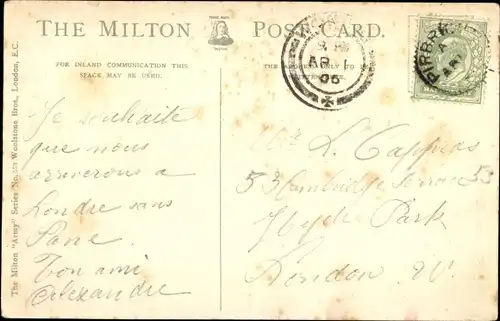 THE MILTON POST CARD.
FOR INLAND COMMUNICATION THIS
SPACE MAY BE USED.
THE ADDRESS ONLY TO BE
AP 1
05
The Milton "Army" Series No. Woolstone Bros., London, E.C.
Je souhaite
que nous
arriverons a
Londre sans
Pane.
Ton ami
Alexandre
L. Cappus
53 Cambridge Terrace 53
Hyde Park
London. W.